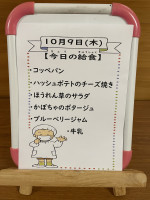 10月9日(木)
【今日の給食】
・コッペパン
・ハッシュポテトのチーズ焼き
・ほうれん草のサラダ
・かぼちゃのポタージュ
・ブルーベリージャム
・牛乳